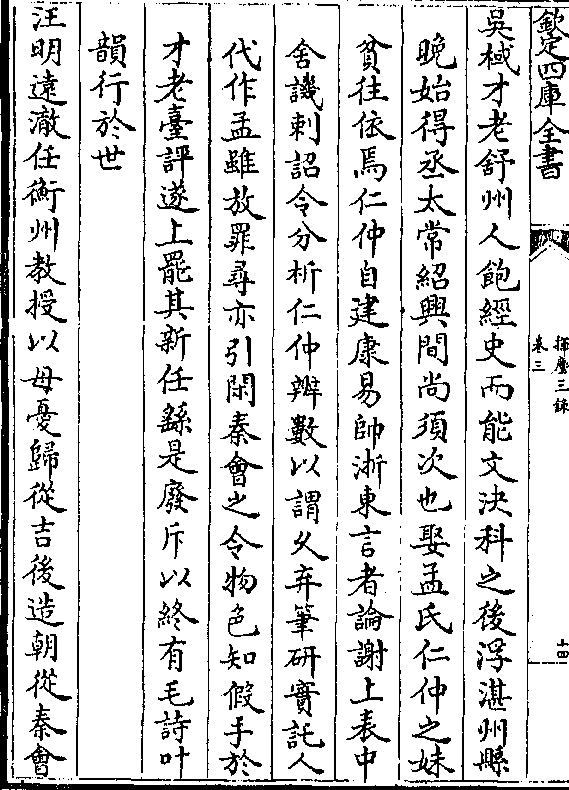 欽定四庫全書
揮麈三錄
卷三
十四
吳棫才老舒州人飽經史而能文決科之後浮湛州縣
晚始得丞太常紹興間尚須次也娶孟氏仁仲之妹
貧往依焉仁仲自建康易帥浙東言者論謝上表中
舍譏刺詔令分析仁仲辨數以謂久弃筆研實託人
代作孟雖放罪尋亦引閑秦會之令物色知假手於
才老臺評遂上罷其新任繇是廢斥以終有毛詩叶
韻行於世
汪明遠澈任衡州教授以母憂歸從吉後造朝從秦會